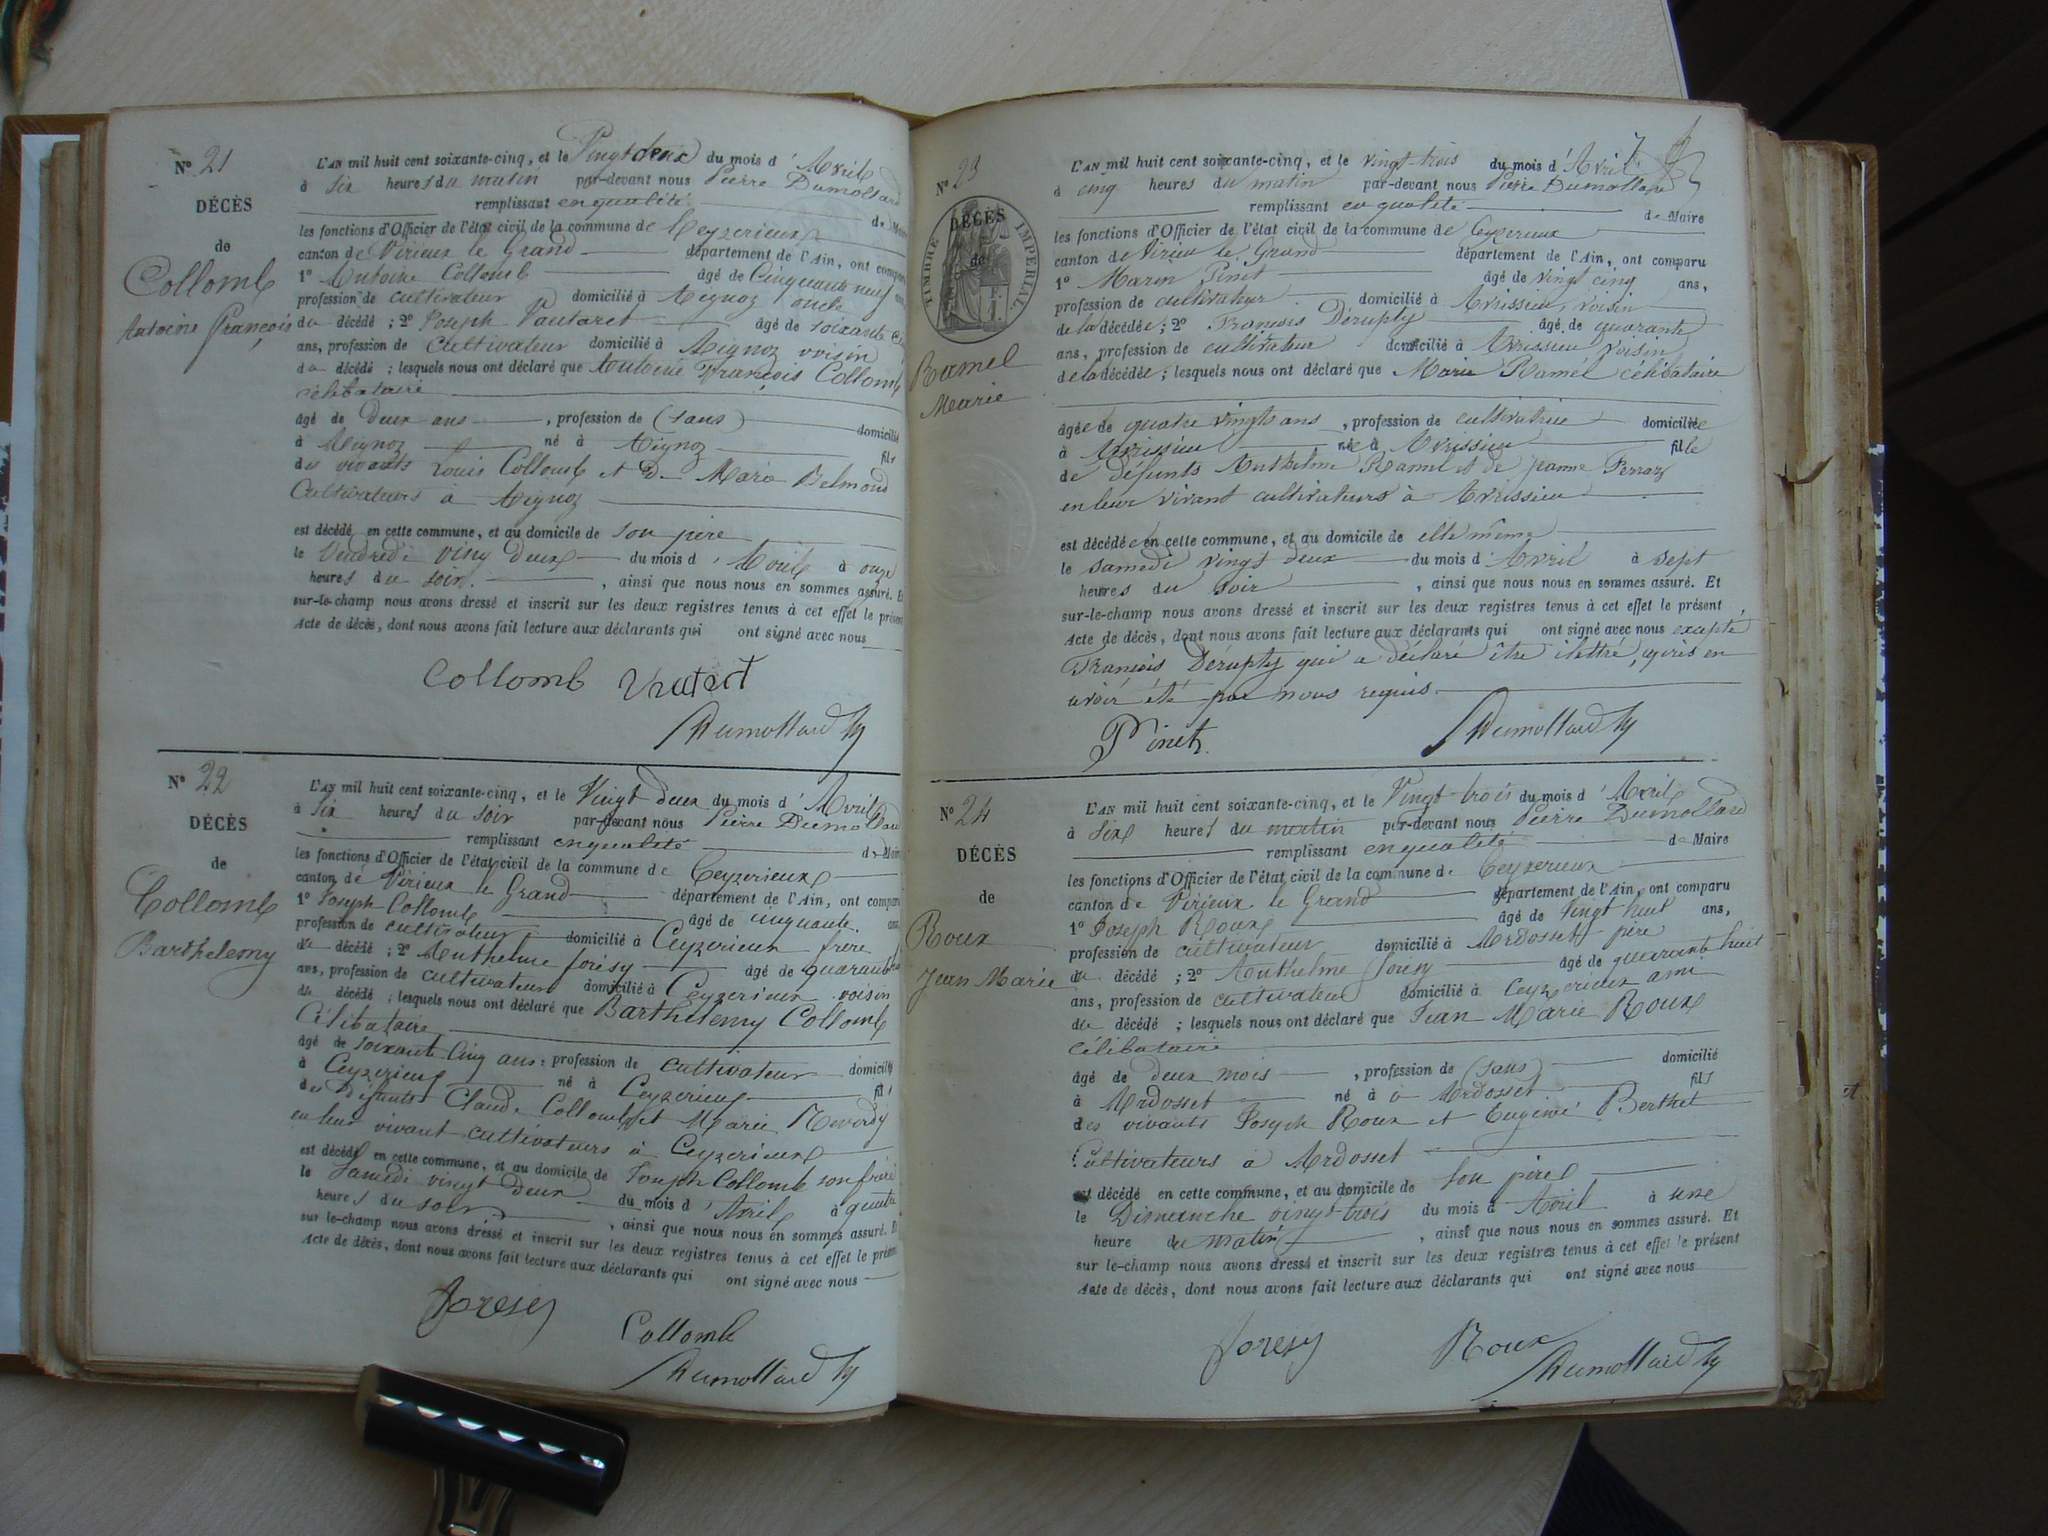 N° 21
DÉCÈS
de
Collomb
Antoine François
L'AN mil huit cent soixante-cinq, et le Vingt deux du mois d'Avril
à six heures du matin par-devant nous Pierre Dumollard
remplissant en qualité de Maire
les fonctions d'Officier de l'état civil de la commune de Ceyzerieux
canton de Virieux le Grand département de l'Ain, ont compar
1° Antoine Collomb âgé de Cinquante neuf ans
profession de cultivateur domicilié à Aignoz oncle
du décédé ; 2° Joseph Vautaret âgé de soixante
ans, profession de Cultivateur domicilié à Aignoz voisin
du décédé ; lesquels nous ont déclaré que Antoine François Collomb
célibataire
âgé de deux ans , profession de (sans) domicilié
à Aignoz né à Aignoz fils
des vivants Louis Collomb et De Marie Belmond
Cultivateurs à Aignoz
est décédé en cette commune, et au domicile de son père
le Vendredi vingt deux du mois d'Avril à onze
heures du soir. , ainsi que nous nous en sommes assuré. Et
sur-le-champ nous avons dressé et inscrit sur les deux registres tenus à cet effet le présent
Acte de décès, dont nous avons fait lecture aux déclarants qui ont signé avec nous
Collomb
Dumollard
N° 22
DÉCÈS
de
Collomb
Barthelemy
L'AN mil huit cent soixante-cinq, et le Vingt deux du mois d'Avril
à Six heures du soir par-devant nous Pierre Dumollard
remplissant en qualité de Maire
les fonctions d'Officier de l'état civil de la commune de Ceyzerieux
canton de Virieux le Grand département de l'Ain, ont compar
1° Joseph Collomb âgé de cinquante ans,
profession de cultivateur domicilié à Ceyzerieux frère
du décédé ; 2° Anthelme Joresy âgé de quarante
ans, profession de cultivateur domicilié à Ceyzerieux voisin
du décédé ; lesquels nous ont déclaré que Barthelemy Collomb
Célibataire
âgé de soixante cinq ans : profession de cultivateur domicilié
à Ceyzerieux né à Ceyzerieux fils
des Défunts Claude Collomb et Marie Reverdy
en leur vivant cultivateurs à Ceyzerieux
est décédé en cette commune, et au domicile de Joseph Collomb son frère
le Samedi vingt deux du mois d'Avril à quatre
heures du soir , ainsi que nous nous en sommes assuré. Et
sur le-champ nous avons dressé et inscrit sur les deux registres tenus à cet effet le présent
Acte de décès, dont nous avons fait lecture aux déclarants qui ont signé avec nous
Joresy
Collomb
Dumollard
7
N° 23
DÉCÈS
de
TIMBRE IMPERIAL
Ramel
Marie
L'AN mil huit cent soixante-cinq, et le vingt trois du mois d'Avril
à cinq heures du matin par-devant nous Pierre Dumollard
remplissant en qualité de Maire
les fonctions d'Officier de l'état civil de la commune de Ceyzerieux
canton de Virieu le Grand département de l'Ain, ont comparu
1° Marin Pinet âgé de vingt cinq ans,
profession de cultivateur domicilié à Avrissieu, voisin
de la décédée ; 2° François Dérupty âgé de quarante
ans, profession de cultivateur domicilié à Avrissieu voisin
de la décédée ; lesquels nous ont déclaré que Marie Ramel célibataire
âgée de quatre vingts ans , profession de cultivatrice domiciliée
à Avrissieu née à Avrissieu fille
de défunts Anthelme Ramel et de jeanne Ferraz
en leur vivant cultivateurs à Avrissieu
est décédée en cette commune, et au domicile de elle même
le samedi vingt deux du mois d'Avril à sept
heures du soir , ainsi que nous nous en sommes assuré. Et
sur-le-champ nous avons dressé et inscrit sur les deux registres tenus à cet effet le présent
Acte de décès, dont nous avons fait lecture aux déclarants qui ont signé avec nous excepté
François Dérupty qui a déclaré être ilettré, après en
avoir été par nous requis.
Pinet
Dumollard
N° 24
DÉCÈS
de
Roux
Jean Marie
L'AN mil huit cent soixante-cinq, et le Vingt-trois du mois d'Avril
à Six heures du matin par-devant nous Pierre Dumollard
remplissant en qualité de Maire
les fonctions d'Officier de l'état civil de la commune de Ceyzerieux
canton de Virieux le Grand département de l'Ain, ont comparu
1° Joseph Roux âgé de Vingt huit ans,
profession de cultivateur domicilié à Ardosset père
du décédé ; 2° Anthelme Joresy âgé de quarante huit
ans, profession de cultivateur domicilié à Ceyzerieux ami
du décédé ; lesquels nous ont déclaré que Jean Marie Roux
célibataire
âgé de deux mois , profession de (sans) domicilié
à Ardosset né à à Ardosset fils
des vivants Joseph Roux et Eugénie Berthet
Cultivateurs à Ardosset
est décédé en cette commune, et au domicile de son père
le Dimanche vingt-trois du mois d'Avril à une
heure du matin , ainsi que nous nous en sommes assuré. Et
sur le-champ nous avons dressé et inscrit sur les deux registres tenus à cet effet le présent
Acte de décès, dont nous avons fait lecture aux déclarants qui ont signé avec nous
Joresy Roux
Dumollard